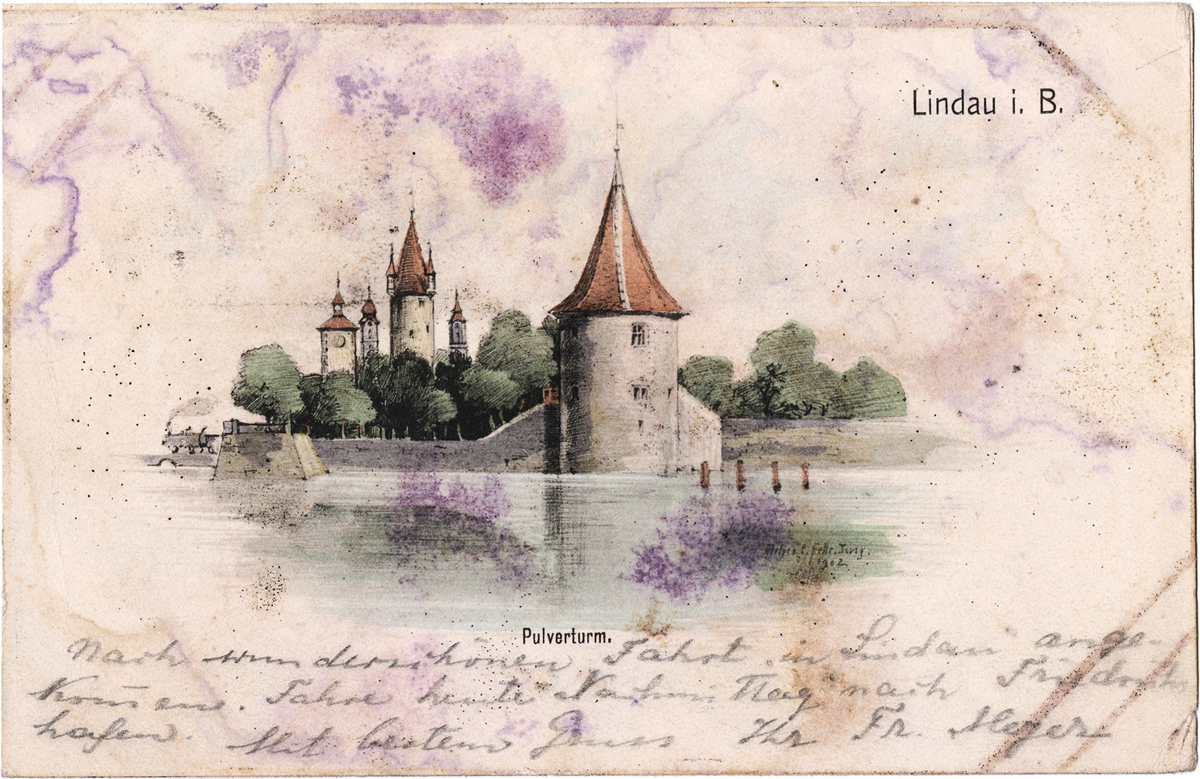 Lindau i. B.
1902
Pulverturm.
Nach wunderschönen Fahrt in Lindau ange-
kom̄en. Fahre heute Nachmittag nach Friedrichs
hafen. Mit bestem Gruss Ihr Fr. Meyer